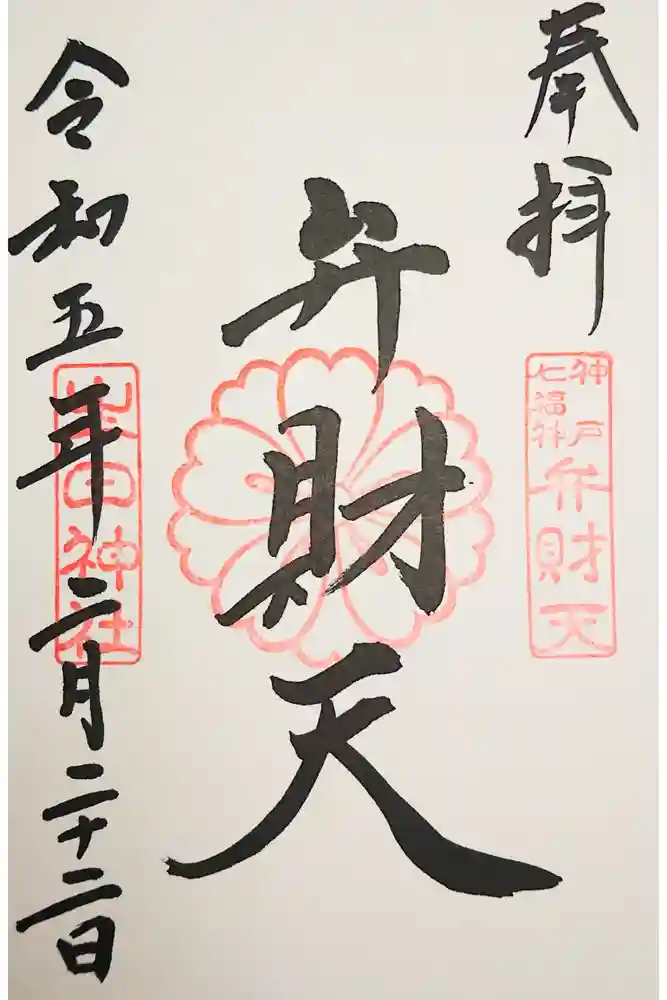 奉拝
神戸
七福神
弁財天
弁財天
令和五年二月二十二日
柴田神社